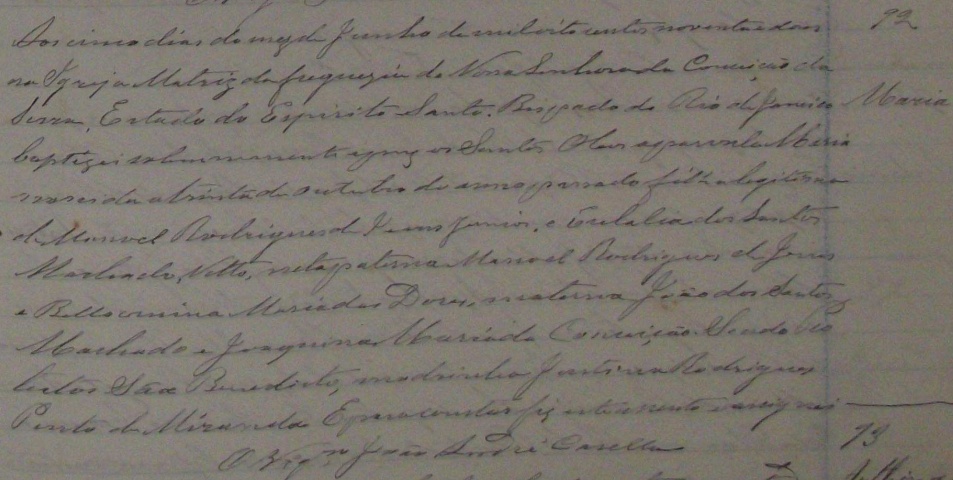 92
Aos cinco dias do mez de Junho de mil oito centos noventa e dous
na Igreja Matriz da freguezia de Nossa Senhora da Conceição da
Serra, Estado do Espirito Santo. Bispado do Rio de Janeiro
Maria
baptizei solemnemente e puz os Santos Oleos a parvula Maria
nascida a trinta de outubro do anno passado filha legitima
de Manoel Rodrigues de Jesus Junior, e Eulalia dos Santos
Machado, Netto, neta paterna Manoel Rodrigues de Jesus
e Belarmina Maria das Dores, materna João dos Santos
Machado e Joaquina Maria da Conceição. Sendo Pro
tector São Benedicto, madrinha Justina Rodrigues
Pinto de Miranda E para constar fiz este assento e assignei
O Vigrº João André Casella
73